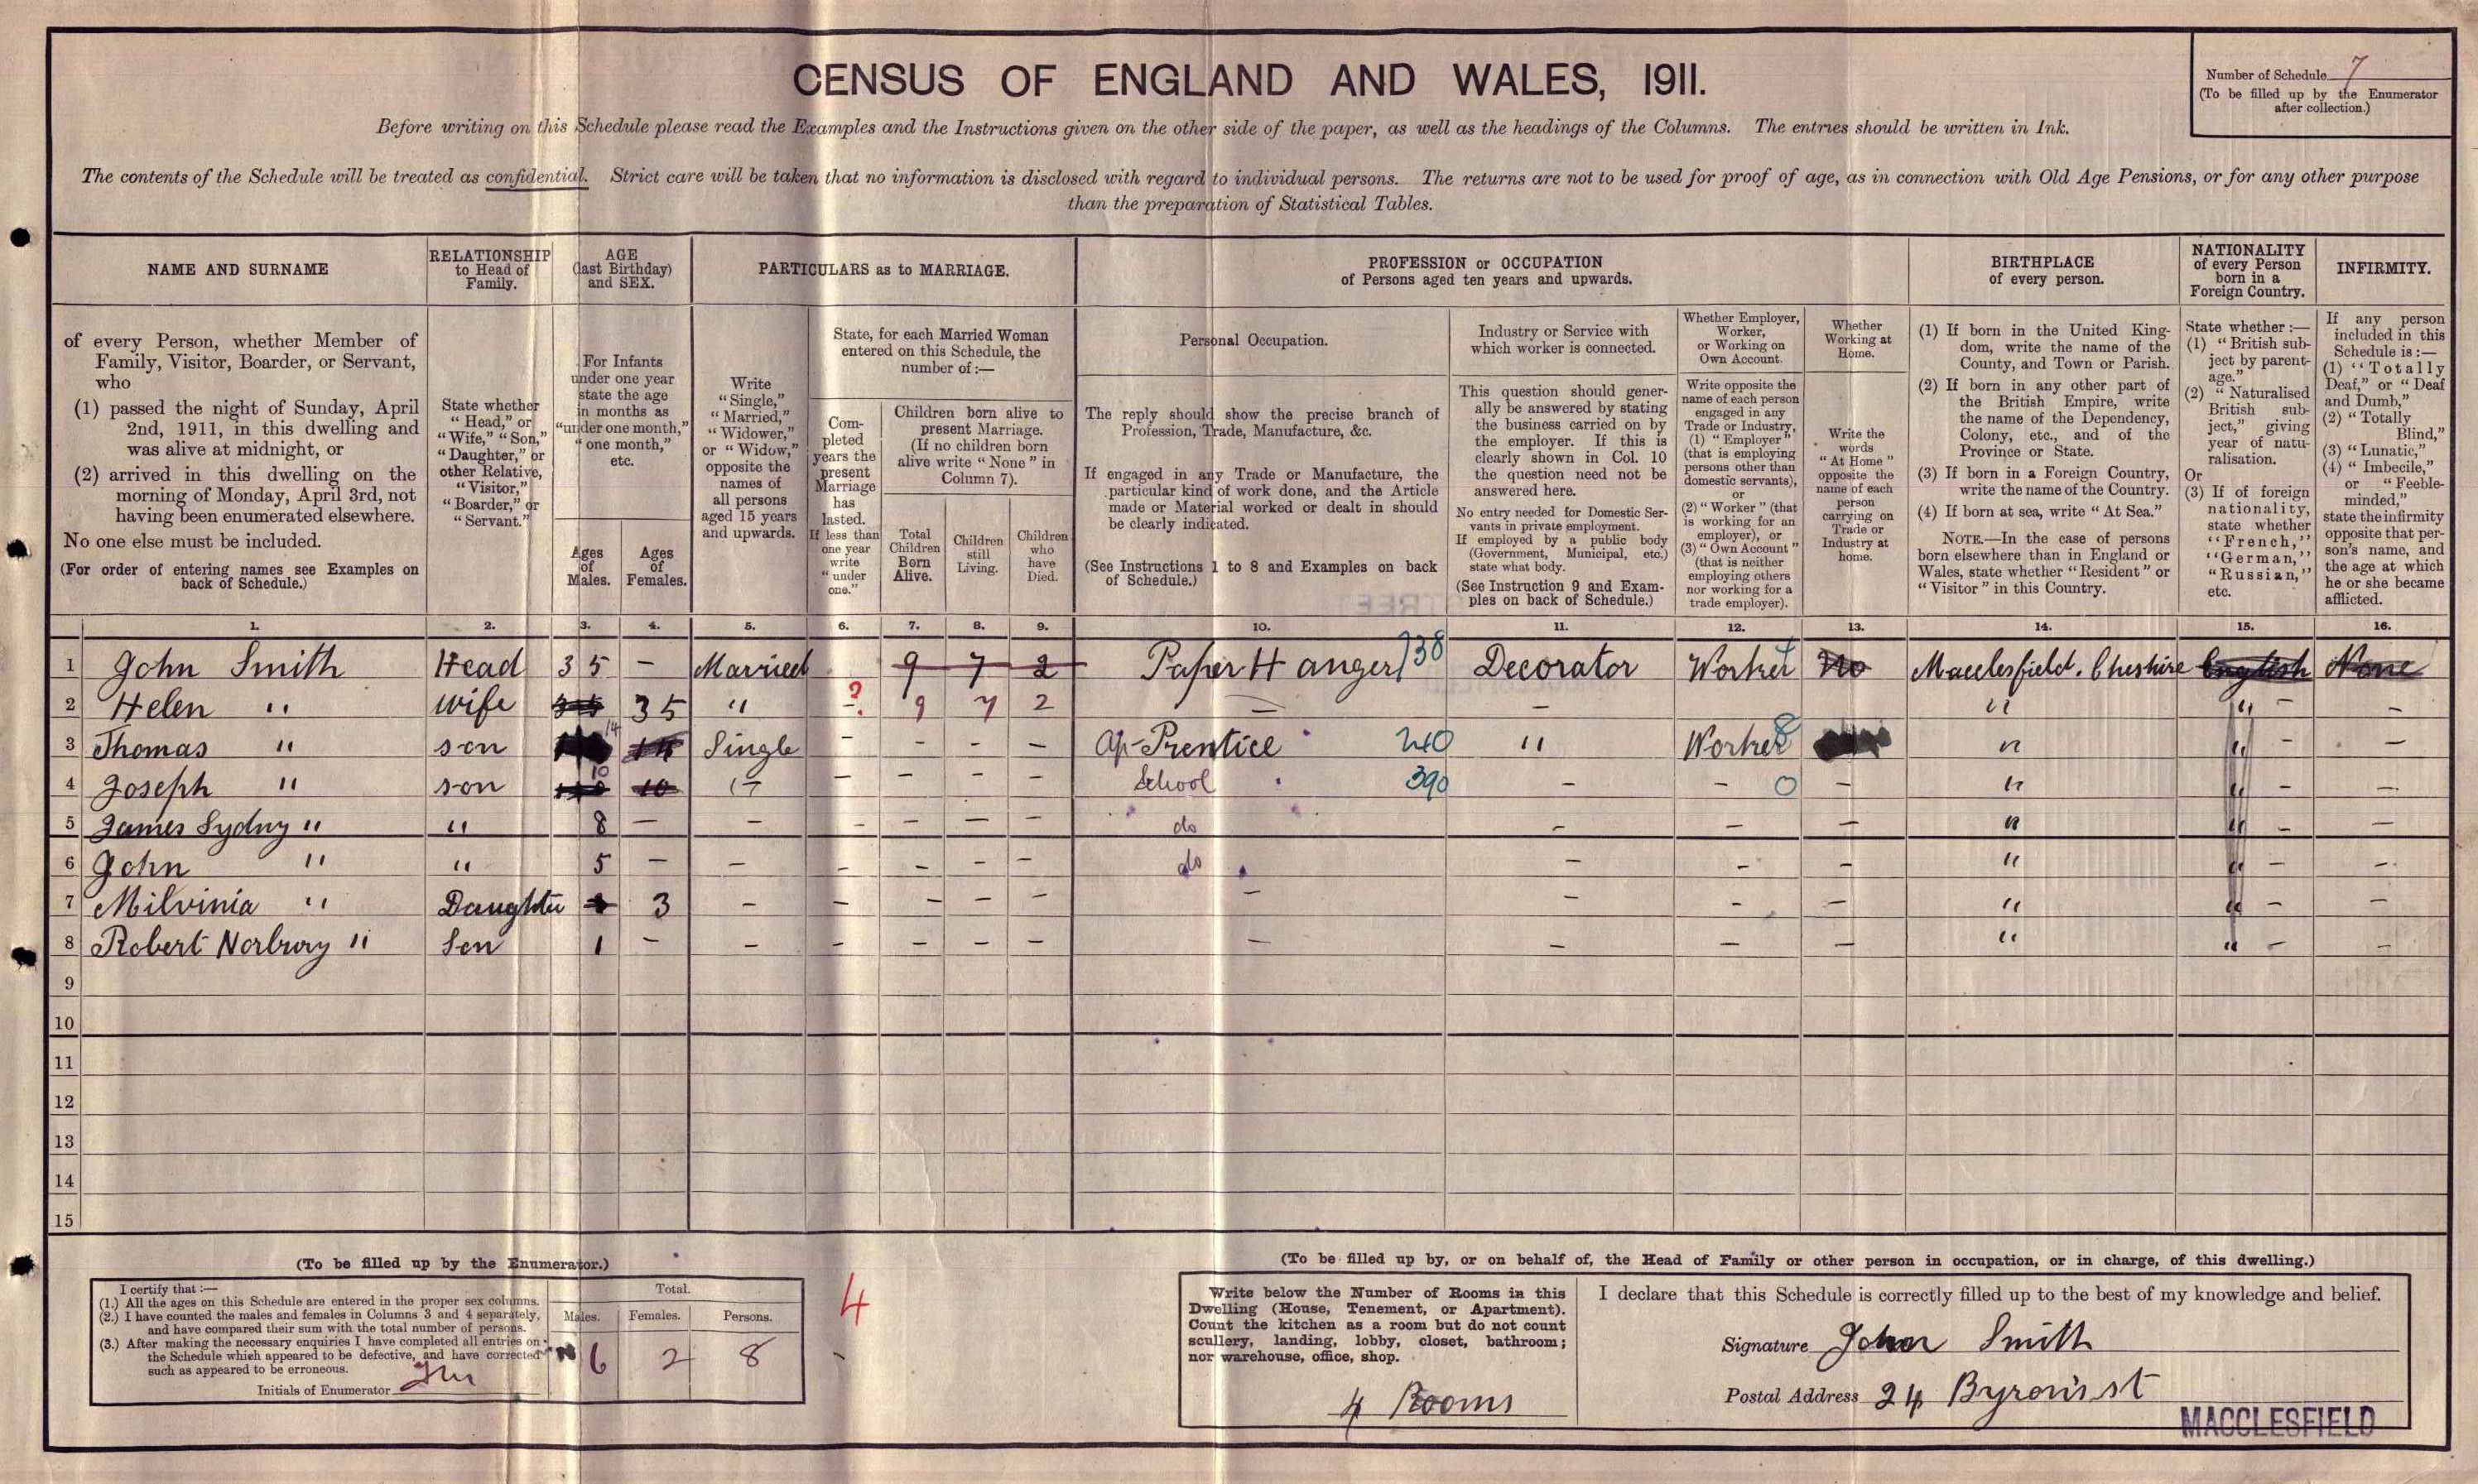 CENSUS OF ENGLAND AND WALES, 1911.
Number of Schedule 7
(To be filled up by the Enumerator
after collection.)
Before writing on this Schedule please read the Examples and the Instructions given on the other side of the paper, as well as the headings of the Columns. The entries should be written in Ink.
The contents of the Schedule will be treated as confidential. Strict care will be taken that no information is disclosed with regard to individual persons. The returns are not to be used for proof of age, as in connection with Old Age Pensions, or for any other purpose
than the preparation of Statistical Tables.
NAME AND SURNAME
of every Person, whether Member of
Family, Visitor, Boarder, or Servant,
who
(1) passed the night of Sunday, April
2nd, 1911, in this dwelling and
was alive at midnight, or
(2) arrived in this dwelling on the
morning of Monday, April 3rd, not
having been enumerated elsewhere.
No one else must be included.
(For order of entering names see Examples on
back of Schedule.)
RELATIONSHIP
to Head of
Family.
State whether
"Head," or
"Wife," "Son,"
"Daughter," or
other Relative,
"Visitor,"
"Boarder," or
"Servant."
AGE
(last Birthday)
and SEX.
For Infants
under one year
state the age
in months as
"under one month,"
"one month,"
etc.
Ages
of
Males.
Ages
of
Females.
PARTICULARS as to MARRIAGE.
Write
"Single,"
"Married,"
"Widower,"
or "Widow,"
opposite the
names of
all persons
aged 15 years
and upwards.
State, for each Married Woman
entered on this Schedule, the
number of:—
Com-
pleted
years the
present
Marriage
has
lasted.
If less than
one year
write
"under
one."
Children born alive to
present Marriage.
(If no children born
alive write "None" in
Column 7).
Total
Children
Born
Alive.
Children
still
Living.
Children
who
have
Died.
PROFESSION or OCCUPATION
of Persons aged ten years and upwards.
Personal Occupation.
The reply should show the precise branch of
Profession, Trade, Manufacture, &c.
If engaged in any Trade or Manufacture, the
particular kind of work done, and the Article
made or Material worked or dealt in should
be clearly indicated.
(See Instructions 1 to 8 and Examples on back
of Schedule.)
Industry or Service with
which worker is connected.
This question should gener-
ally be answered by stating
the business carried on by
the employer. If this is
clearly shown in Col. 10
the question need not be
answered here.
No entry needed for Domestic Ser-
vants in private employment.
If employed by a public body
(Government, Municipal, etc.)
state what body.
(See Instruction 9 and Exam-
ples on back of Schedule.)
Whether Employer,
Worker,
or Working on
Own Account.
Write opposite the
name of each person
engaged in any
Trade or Industry,
(1) "Employer"
(that is employing
persons other than
domestic servants),
or
(2) "Worker" (that
is working for an
employer), or
(3) "Own Account"
(that is neither
employing others
nor working for a
trade employer).
Whether
Working at
Home.
Write the
words
"At Home"
opposite the
name of each
person
carrying on
Trade or
Industry at
home.
BIRTHPLACE
of every person.
(1) If born in the United King-
dom, write the name of the
County, and Town or Parish.
(2) If born in any other part of
the British Empire, write
the name of the Dependency,
Colony, etc., and of the
Province or State.
(3) If born in a Foreign Country,
write the name of the Country.
(4) If born at sea, write "At Sea."
NOTE.—In the case of persons
born elsewhere than in England or
Wales, state whether "Resident" or
"Visitor" in this Country.
NATIONALITY
of every Person
born in a
Foreign Country.
State whether:—
(1) "British sub-
ject by parent-
age."
(2) "Naturalised
British sub-
ject," giving
year of natu-
ralisation.
Or
(3) If of foreign
nationality,
state whether
"French,"
"German,"
"Russian,"
etc.
INFIRMITY.
If any person
included in this
Schedule is:—
(1) "Totally
Deaf," or "Deaf
and Dumb,"
(2) "Totally
Blind,"
(3) "Lunatic,"
(4) "Imbecile,"
or "Feeble-
minded,"
state the infirmity
opposite that per-
son's name, and
the age at which
he or she became
afflicted.
1. 2. 3. 4. 5. 6. 7. 8. 9. 10. 11. 12. 13. 14. 15. 16.
1 John Smith Head 35 – Married 9 7 2 Paper Hanger 738 Decorator Worker No Macclesfield. Cheshire English None
2 Helen " Wife 35 35 " ? 9 7 2 – – " " –
3 Thomas " son 14 14 Single – – – – Ap-Prentice 240 " Worker 8 " " – –
4 Joseph " son 10 10 " – – – – School 390 – – 0 – " " – –
5 James Sydny " " 8 – – – – – – do – – – " " – –
6 John " " 5 – – – – – – do – – – " " – –
7 Milvinia " Daughter 3 – – – – – – – – – " " – –
8 Robert Norbury " Son 1 – – – – – – – – – – " " – –
9
10
11
12
13
14
15
(To be filled up by the Enumerator.)
I certify that:—
(1.) All the ages on this Schedule are entered in the proper sex columns.
(2.) I have counted the males and females in Columns 3 and 4 separately,
and have compared their sum with the total number of persons.
(3.) After making the necessary enquiries I have completed all entries on
the Schedule which appeared to be defective, and have corrected
such as appeared to be erroneous.
Initials of Enumerator
Total.
Males. Females. Persons.
6 2 8
4
(To be filled up by, or on behalf of, the Head of Family or other person in occupation, or in charge, of this dwelling.)
Write below the Number of Rooms in this
Dwelling (House, Tenement, or Apartment).
Count the kitchen as a room but do not count
scullery, landing, lobby, closet, bathroom;
nor warehouse, office, shop.
4 Rooms
I declare that this Schedule is correctly filled up to the best of my knowledge and belief.
Signature John Smith
Postal Address 24 Byron's st
MACCLESFIELD